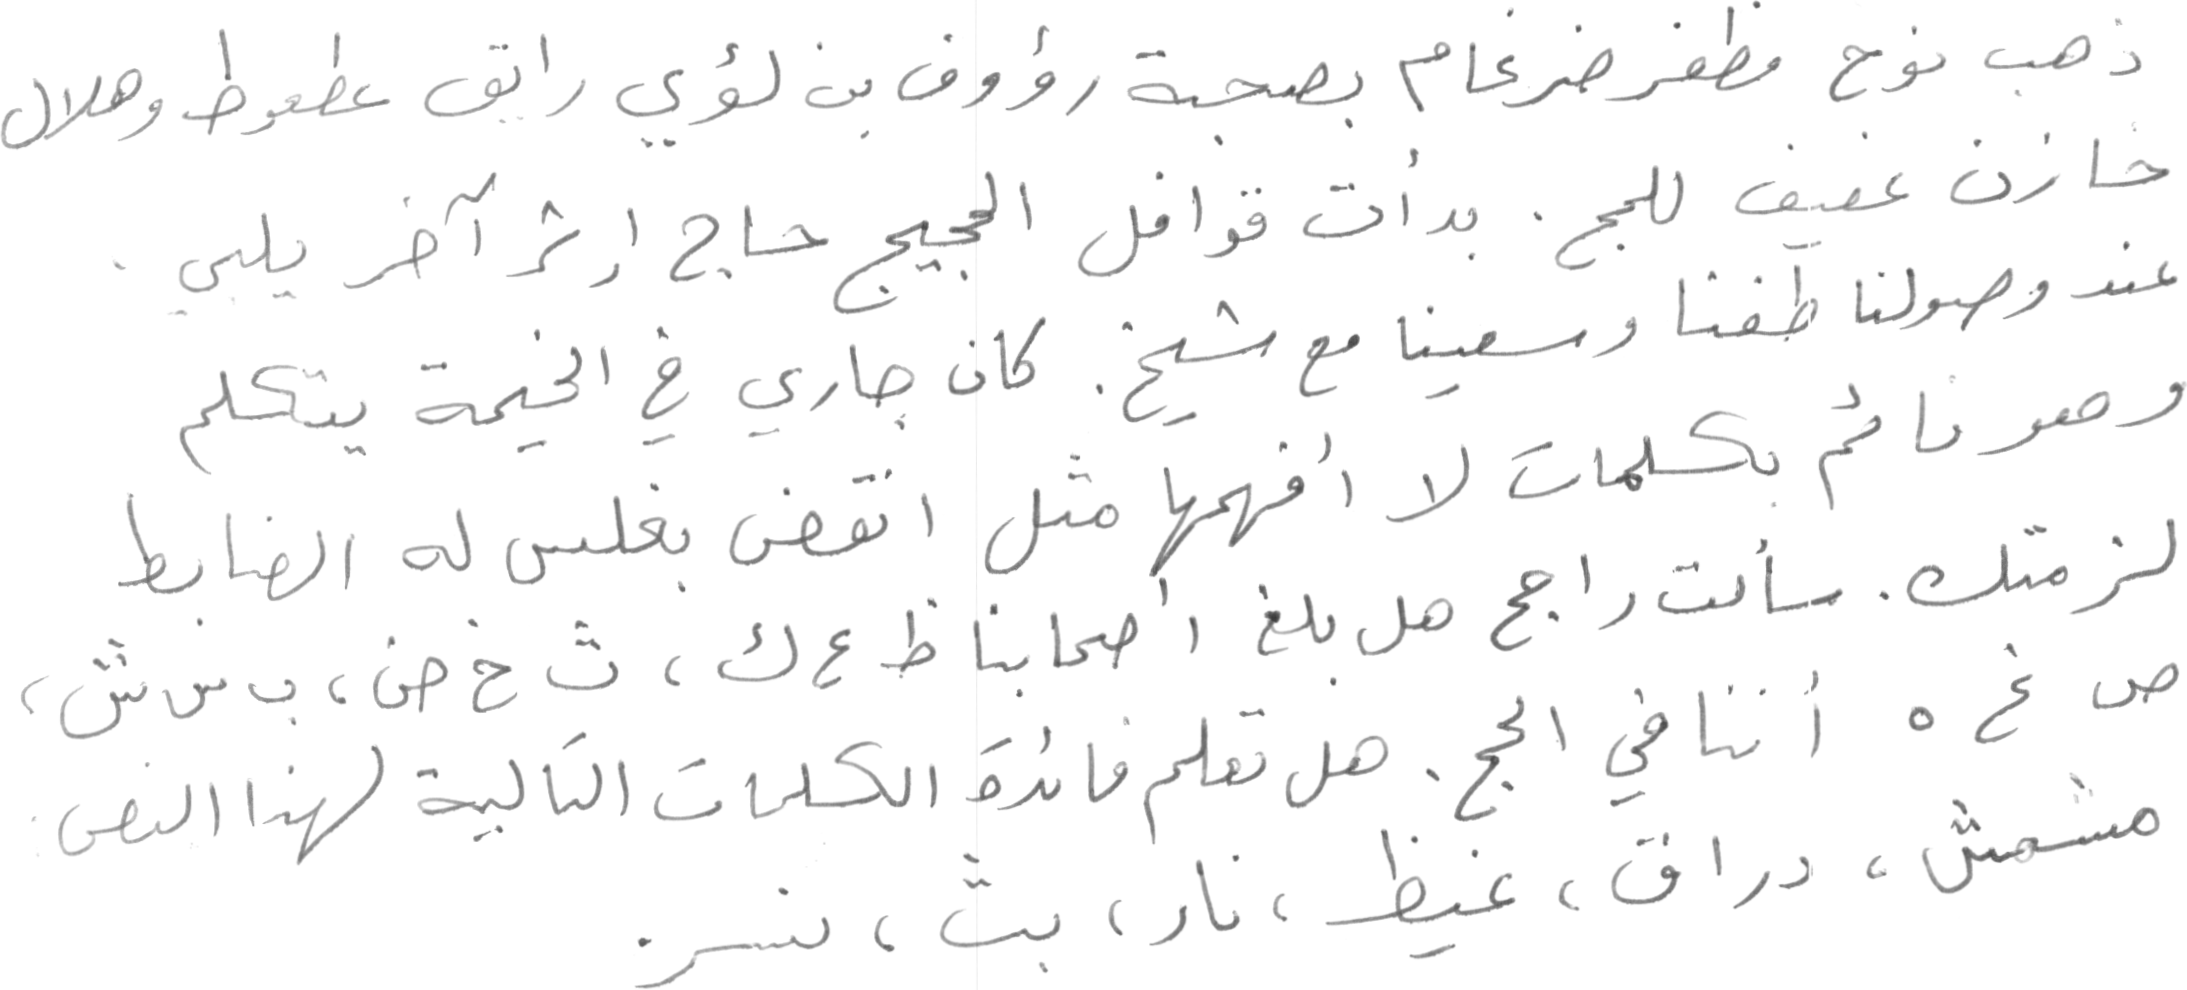 ذهب نوح مظفر ضرغام بصحبة رؤوف بن لؤي رايق عطعوط وهلال
خازن عفيف للحج. بدأت قوافل الحجيج حاج إثر آخر يلبي.
عند وصولنا طفنا وسعينا مع شيخ. كان جاري في الخيمة يتكلم
وهو نائم بكلمات لا أفهمها مثل انقض بغلس له الضابط
لزمتك. سألت راجح هل بلغ أصحابنا ظ ع ك، ث خ ض، ب س ش،
ص غ ه أننا في الحج. هل تعلم فائدة الكلمات التالية لهذا النص:
مشمش، دراق، غيظ، نار، بث، نسر.